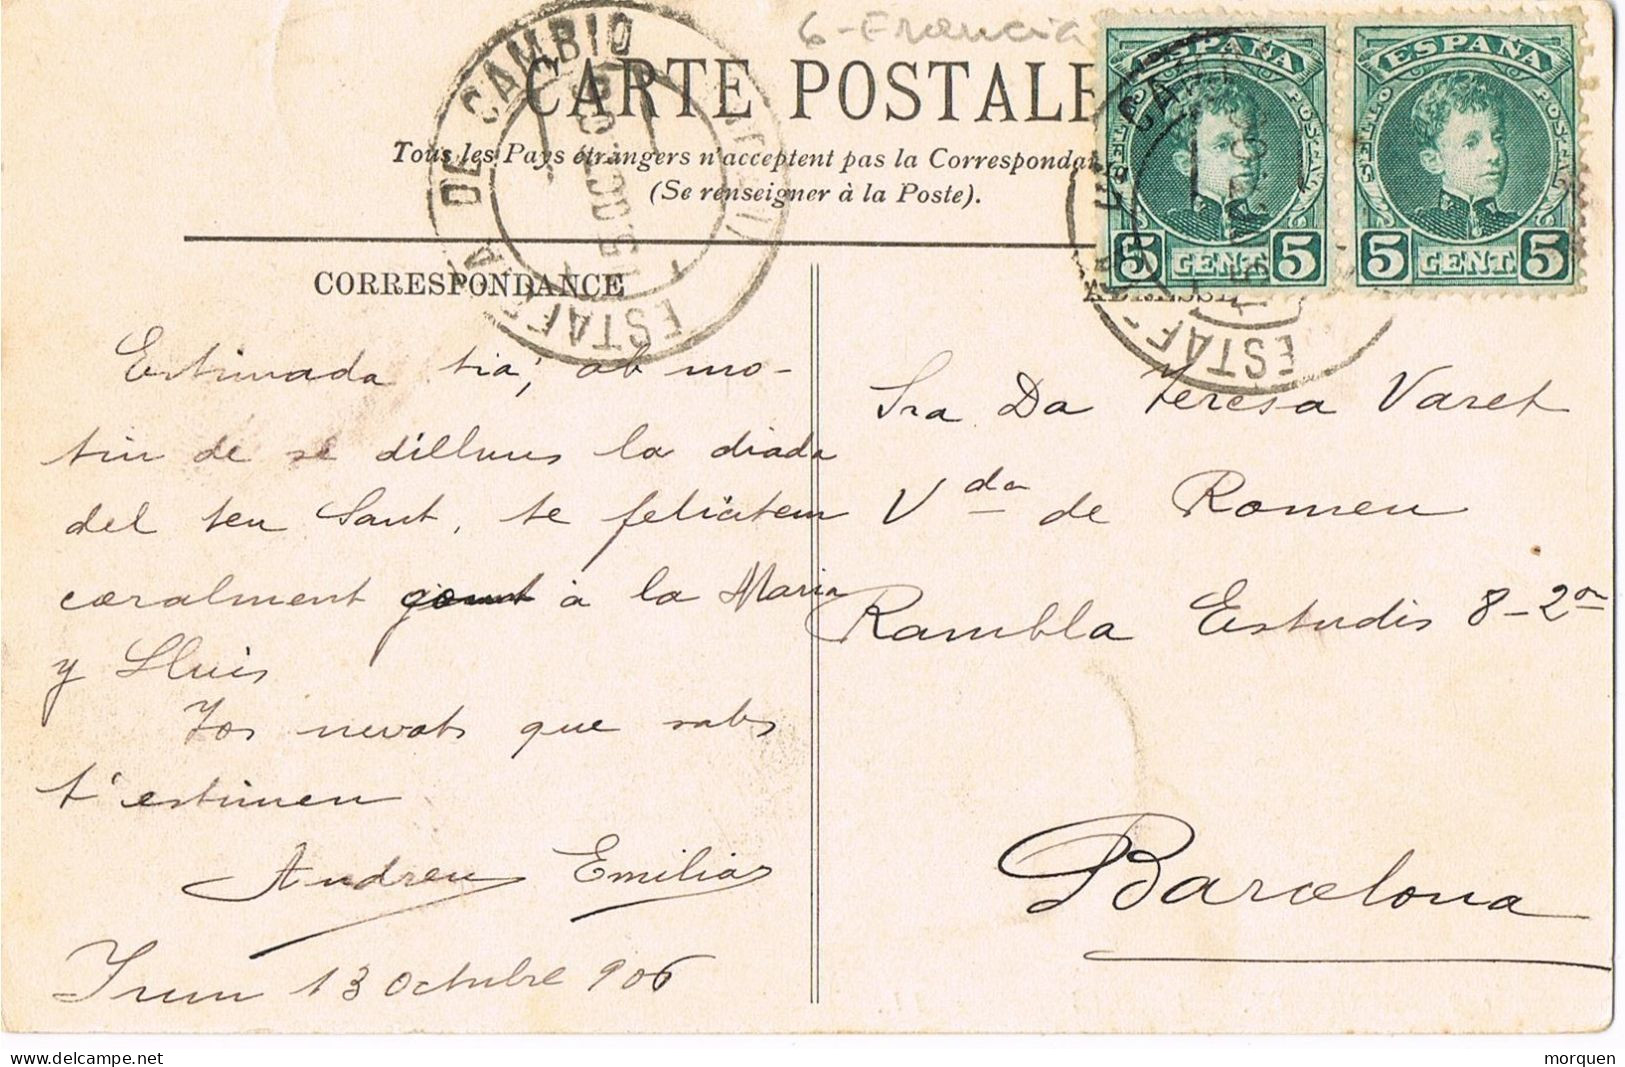 6-Francia
CARTE POSTALE
Tous les Pays étrangers n'acceptent pas la Correspondan
(Se renseigner à la Poste).
ESPAÑA
ESPAÑA
5 CENT. 5
5 CENT. 5
DE CAMBIO
ESTAF
15 OCT
ESTAF
CORRESPONDANCE
ADRESSE
Estimada tia; ab mo-
tiu de sé dilluns la diada
del teu Sant, te felicitem
coralment à la Maria
y Lluis
Tos nevots que sabs
t'estimen
Andreu Emilia
Irun 13 Octubre 906
Sra Da Teresa Varet
Vda de Romeu
Rambla Estudis 8-2on
Barcelona
morquen
www.delcampe.net